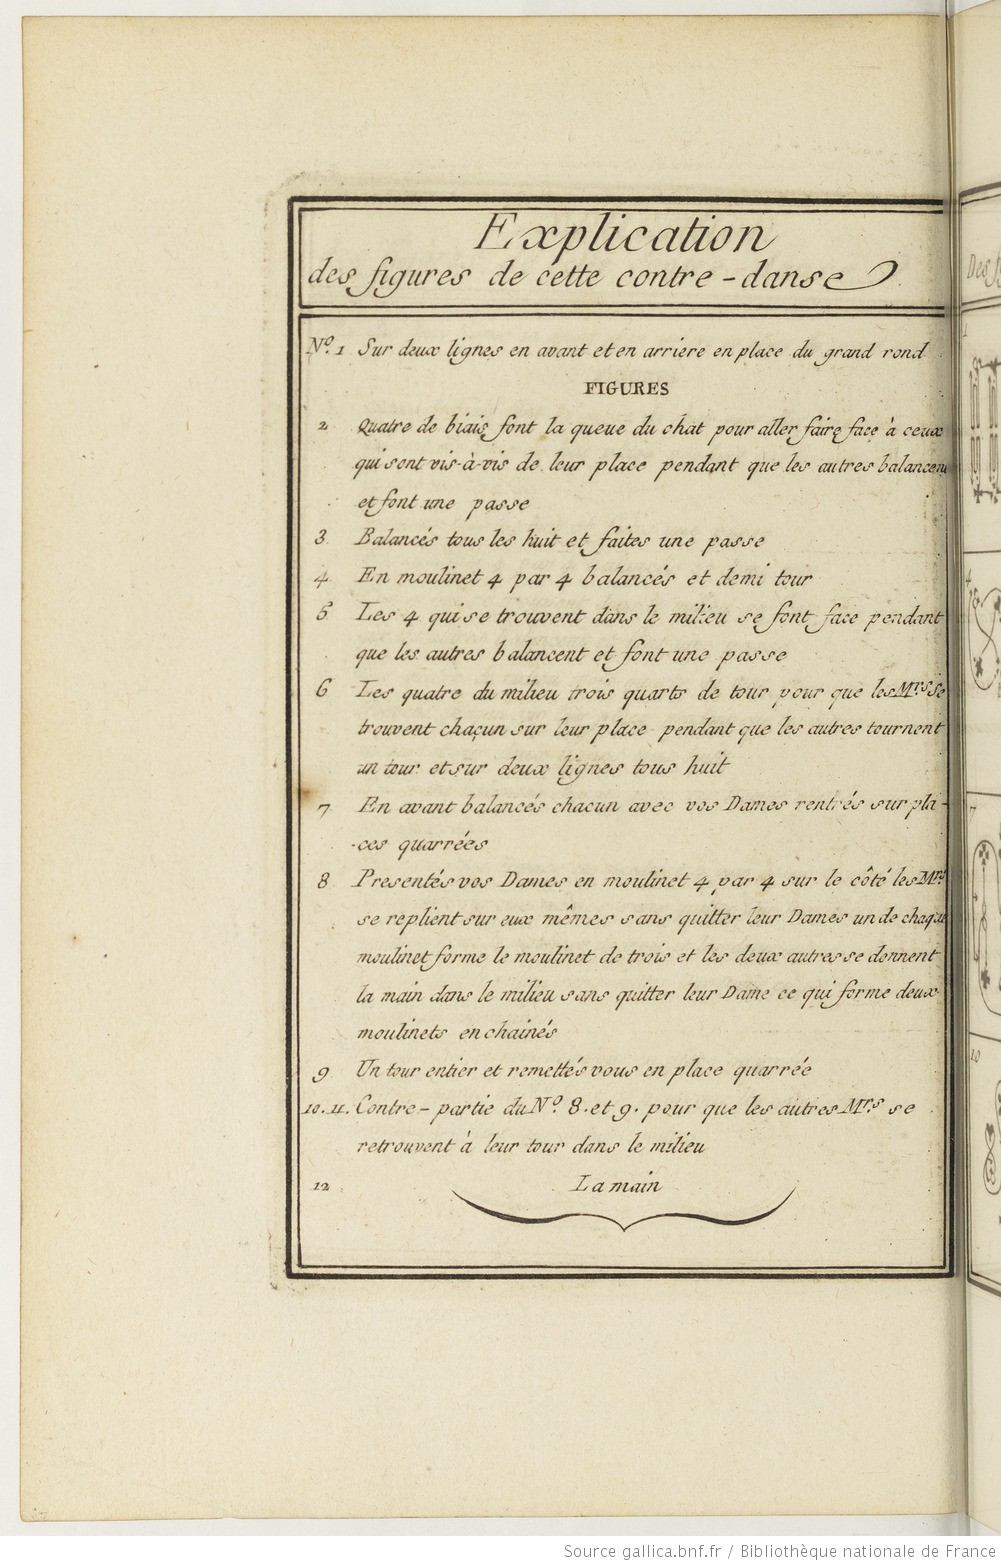 Explication
des figures de cette contre-danse
Nº. 1 Sur deux lignes en avant et en arriere en place du grand rond
FIGURES
2 Quatre de biais font la queue du chat pour aller faire face à ceux
qui sont vis-à-vis de leur place pendant que les autres balancent
et font une passe
3 Balancés tous les huit et faites une passe
4 En moulinet 4 par 4 balancés et demi tour
5 Les 4 qui se trouvent dans le milieu se font face pendant
que les autres balancent et font une passe
6 Les quatre du milieu trois quarts de tour pour que les Mrs se
trouvent chaçun sur leur place pendant que les autres tournent
un tour et sur deux lignes tous huit
7 En avant balancés chacun avec vos Dames rentrés sur pla-
-ces quarrées
8 Presentés vos Dames en moulinet 4 par 4 sur le côté les Mrs
se replient sur eux mêmes sans quitter leur Dames un de chaque
moulinet forme le moulinet de trois et les deux autres se donnent
la main dans le milieu sans quitter leur Dame ce qui forme deux
moulinets enchainés
9 Un tour entier et remettés vous en place quarrée
10. 11. Contre-partie du Nº. 8. et 9. pour que les autres Mrs se
retrouvent à leur tour dans le milieu
12 La main
Des
4
7
10
Source gallica.bnf.fr / Bibliothèque nationale de France